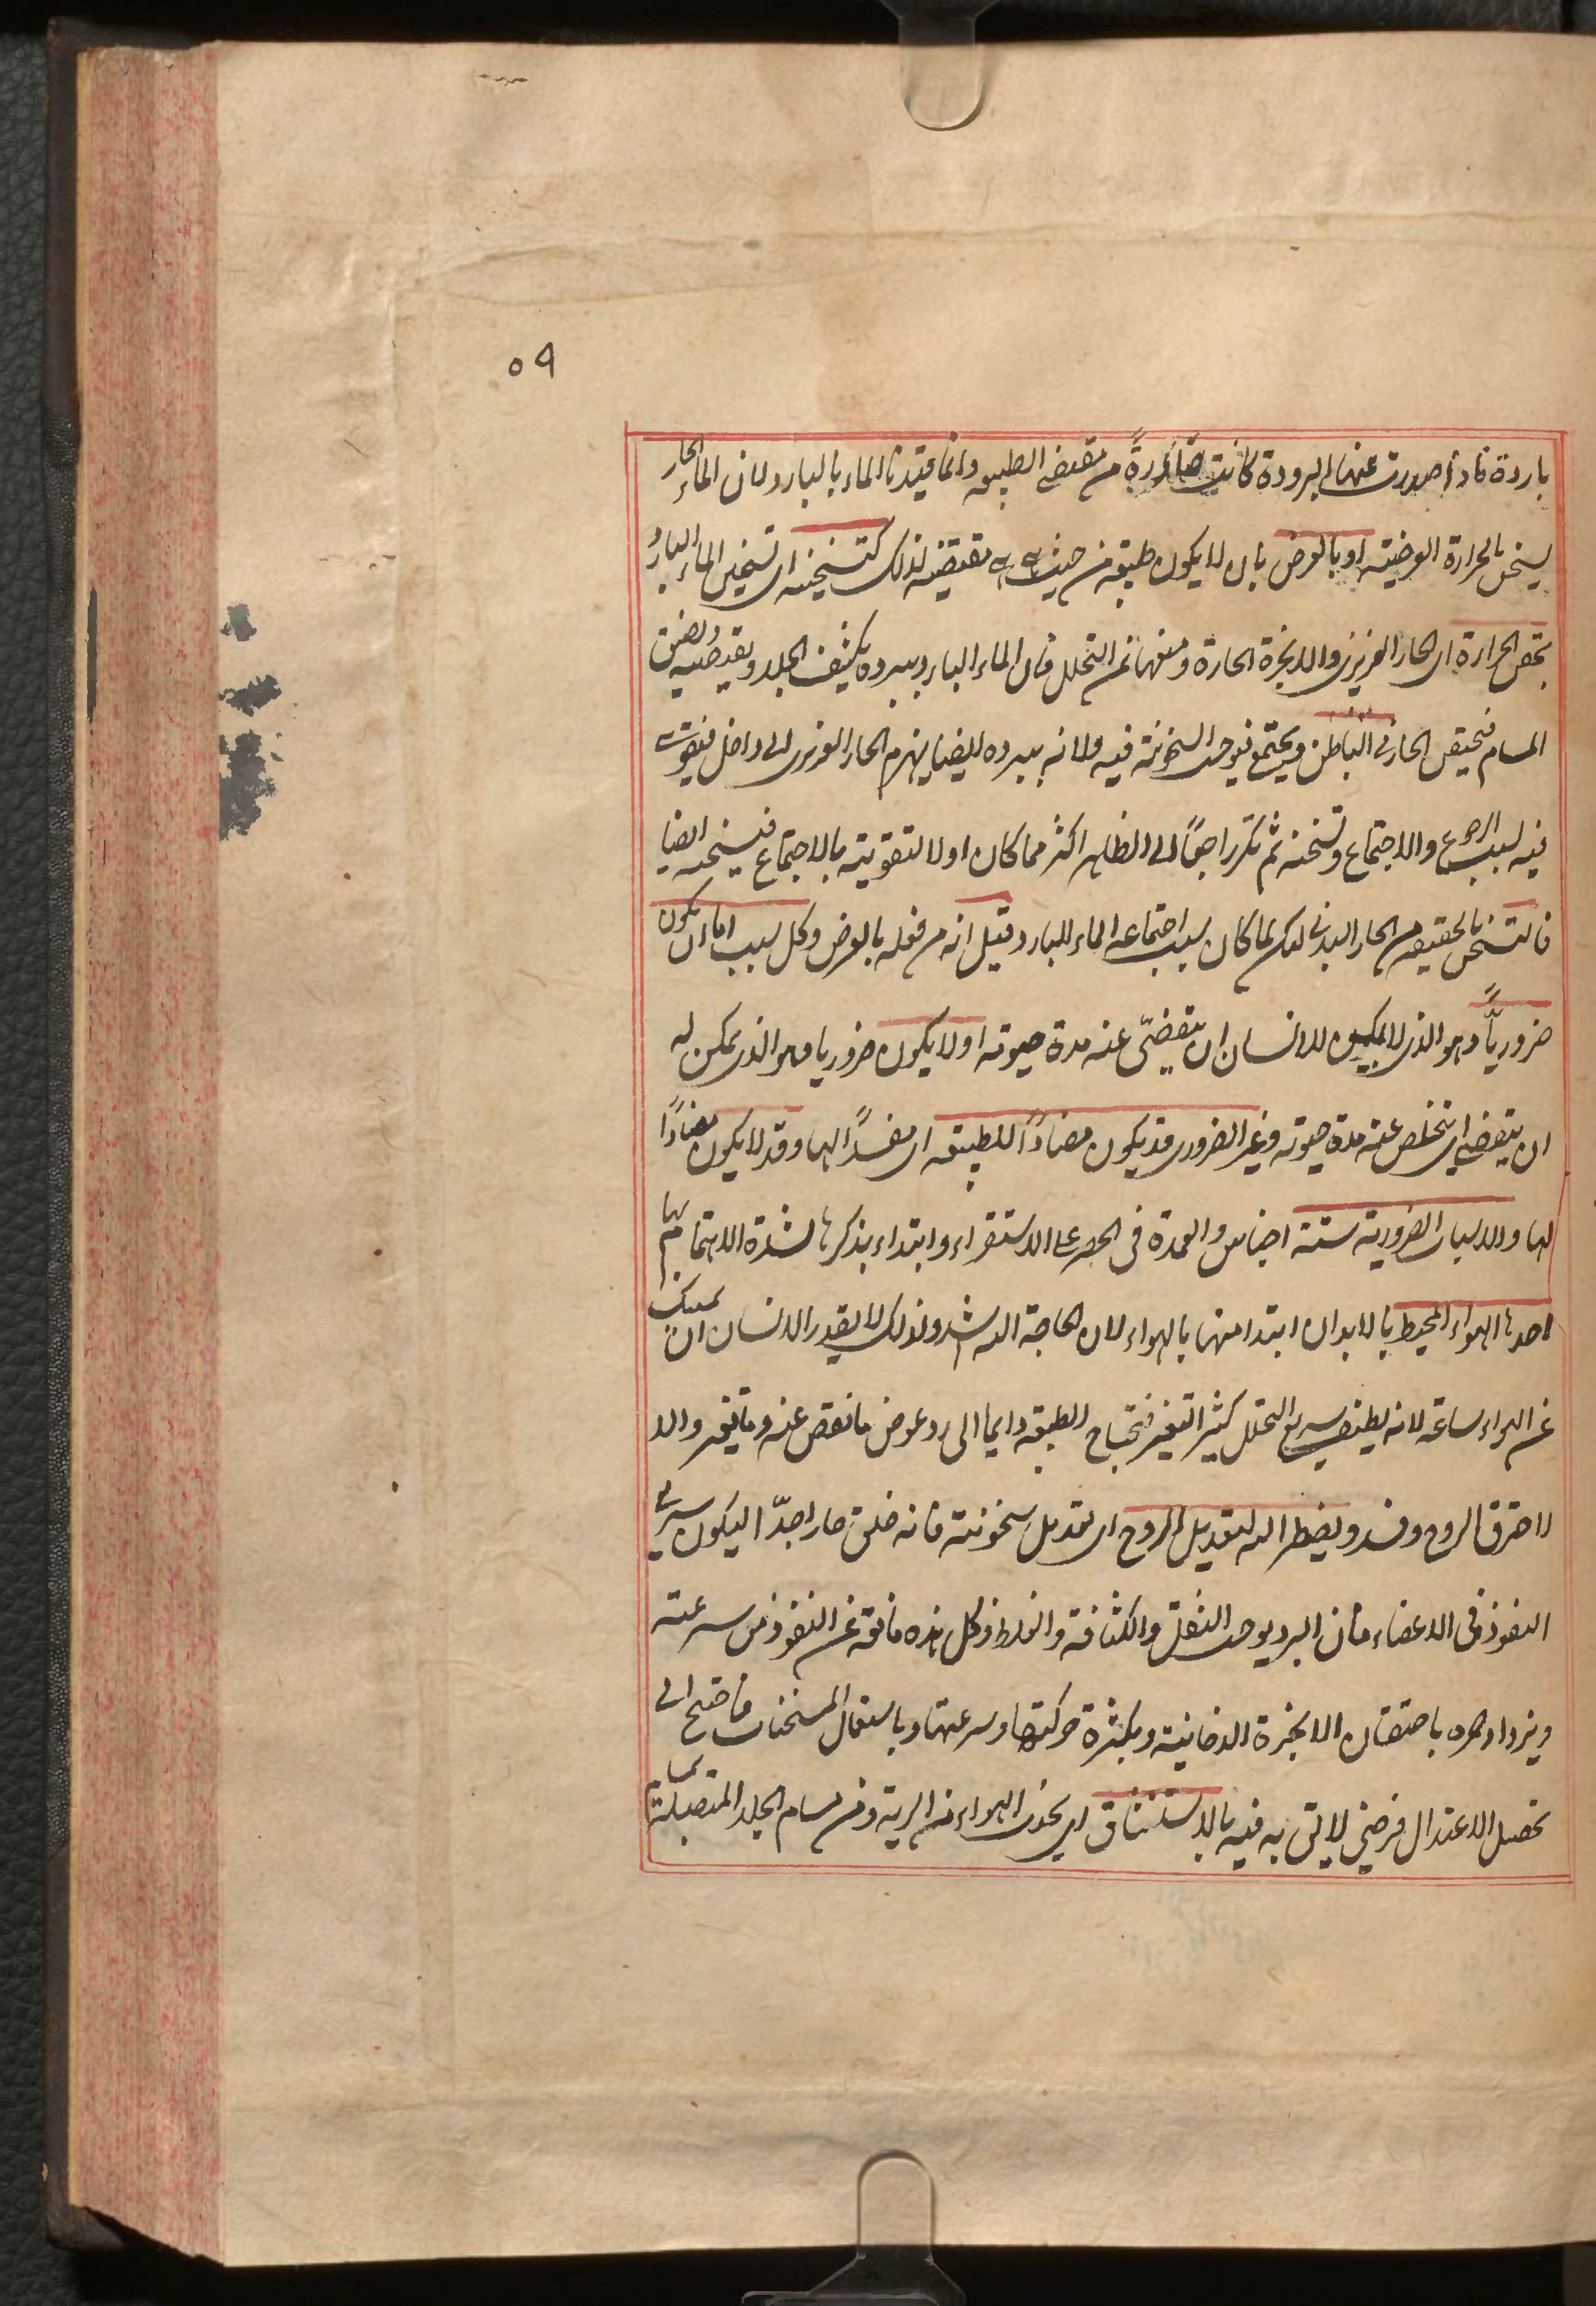 ٥٩
باردة فاذا صدرت عنها البرودة كانت صادرة من مقتضى الطبيعه وانما قيدنا الماء بالبارد لان الماء الحار
يسخن بالحرارة العرضيته او بالعرض بان لا يكون طبيعته من حيث هى هى مقتضيه لذلك كتسخينه اى تسخين الماء البارد
بحقن الحرارة اى الحار الغريزى والابخرة الحارة ومنعها عن التحلل فان الماء البارد ببرده يكثف الجلد ويقبضه ويضيق
المسام فيحتقن الحار فى الباطن ويجتمع فيوجب السخونة فيه ولانه ببرده ايضا ينهزم الحار الغريزى الى داخل فيقوى
فيه لسبب الرجوع والاجتماع وتسخنه ثم تكر راجعًا الى الظاهر اكثر مما كان اولا لتقويته بالاجتماع فيسخنه ايضا
فالتسخن بالحقيقه من الحار البدنى لكن لما كان سبب اجتماعه الماء البارد قيل انه من فعله بالعرض وكل سبب اما ان يكون
ضروريًّا وهو الذى لا يمكن للانسان ان يتقضّى عنه مدة حيوته او لا يكون ضروريا وهو الذى يمكن له
ان يتقضى اى يتخلص عنه مدة حيوته وغير الضرورى قد يكون مضادًا للطبيعه اى مفسدًا لها وقد لا يكون مضادًا
لها والاسباب الضرورية ستة اجناس والعمدة فى الحصر على الاستقراء وابتداء بذكرها لشدة الاهتمام بها
احدها الهواء المحيط بالابدان ابتدا منها بالهواء لان الحاجة اليه اشد ولذلك لا يقدر الانسان ان يمسك
عن الهواء ساعة لانه لطيف سريع التحلل كثير التغير فيحتاج الطبيعة دايما الى رد عوض ما نقص عنه وما تغير والا
لاحترق الروح وفسد ويضطر اليه لتعديل الروح اى لتعديل سخونته فانه خلق حارا جدّا ليكون سريع
النفوذ فى الاعضاء فان البرد يوجب الثقل والكثافة والغلظ وكل هذه مانعة عن النفوذ من سرعته
ويزداد حره باحتقان الابخرة الدخانية وبكثرة حركتها وسرعتها وباستعمال المسخنات فاحتيج الى
تحصيل الاعتدال فرضى لايق به فيه بالاستنشاق اى بجذب الهواء من الرية ومن مسام الجلد المتصلة بها